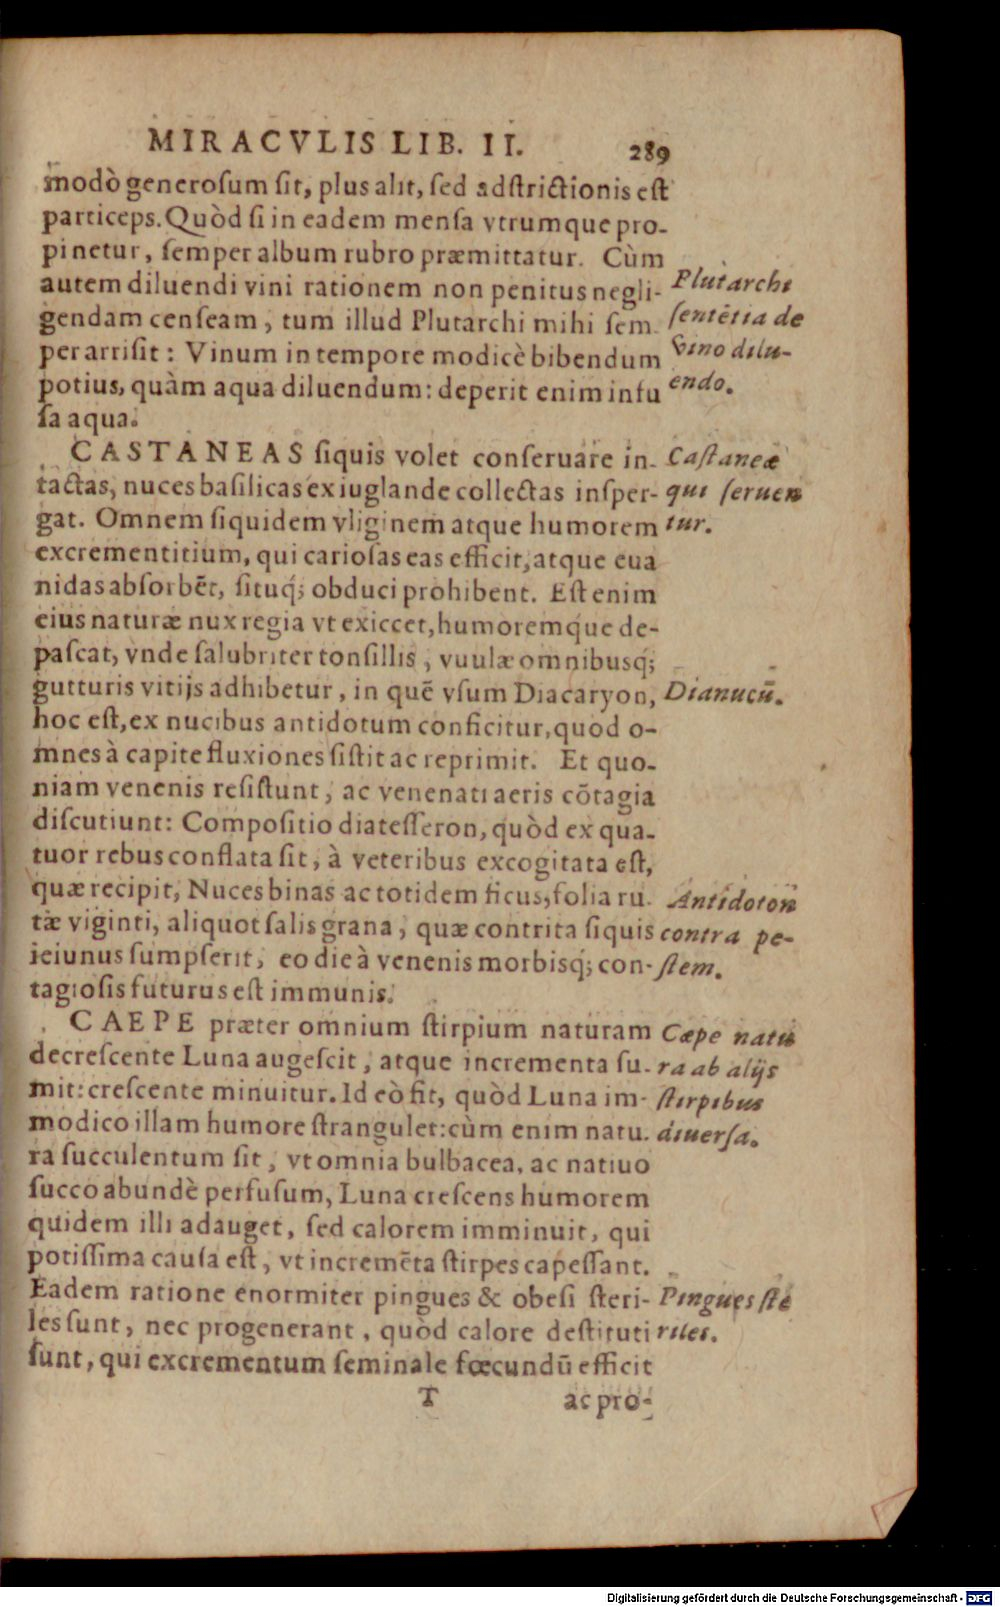 MIRACVLIS LIB. II. 289
modò generoſum ſit, plus alit, ſed adſtrictionis eſt
particeps. Quòd ſi in eadem menſa vtrumque pro-
pinetur, ſemper album rubro præmittatur. Cùm
autem diluendi vini rationem non penitus negli-
gendam cenſeam, tum illud Plutarchi mihi ſem-
per arriſit: Vinum in tempore modicè bibendum
potius, quàm aqua diluendum: deperit enim infu
ſa aqua.
Plutarchi
ſentētia de
vino dilu-
endo.
CASTANEAS ſiquis volet conſeruare in-
tactas, nuces baſilicas ex iuglande collectas inſper-
gat. Omnem ſiquidem vliginem atque humorem
excrementitium, qui carioſas eas efficit, atque eua
nidas abſorbēt, ſituq́; obduci prohibent. Eſt enim
eius naturæ nux regia vt exiccet, humoremque de-
paſcat, vnde ſalubriter tonſillis, vuulæ omnibusq́;
gutturis vitijs adhibetur, in quē vſum Diacaryon,
hoc eſt, ex nucibus antidotum conficitur, quod o-
mnes à capite fluxiones ſiſtit ac reprimit. Et quo-
niam venenis reſiſtunt, ac venenati aeris cōtagia
diſcutiunt: Compoſitio diateſſeron, quòd ex qua-
tuor rebus conflata ſit, à veteribus excogitata eſt,
quæ recipit, Nuces binas ac totidem ficus, folia ru-
tæ viginti, aliquot ſalis grana, quæ contrita ſiquis
ieiunus ſumpſerit, eo die à venenis morbisq́; con-
tagioſis futurus eſt immunis.
Caſtaneæ
qui ſeruen
tur.
Dianucū.
Antidoton
contra pe-
ſtem.
CAEPE præter omnium ſtirpium naturam
decreſcente Luna augeſcit, atque incrementa ſu-
mit: creſcente minuitur. Id eò fit, quòd Luna im-
modico illam humore ſtrangulet: cùm enim natu-
ra ſucculentum ſit, vt omnia bulbacea, ac natiuo
ſucco abundè perfuſum, Luna creſcens humorem
quidem illi adauget, ſed calorem imminuit, qui
potiſſima cauſa eſt, vt incremēta ſtirpes capeſſant.
Eadem ratione enormiter pingues & obeſi ſteri-
les ſunt, nec progenerant, quòd calore deſtituti
ſunt, qui excrementum ſeminale fœcundū efficit
Cæpe natu
ra ab alijs
ſtirpibus
diuerſa.
Pingues ſte
riles.
T ac pro-
Digitalisierung gefördert durch die Deutsche Forschungsgemeinschaft - DFG